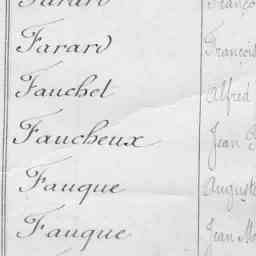 Farard François
Farard François
Fauchet Alfred
Faucheux Jean
Fauque Auguste
Fauque Jean